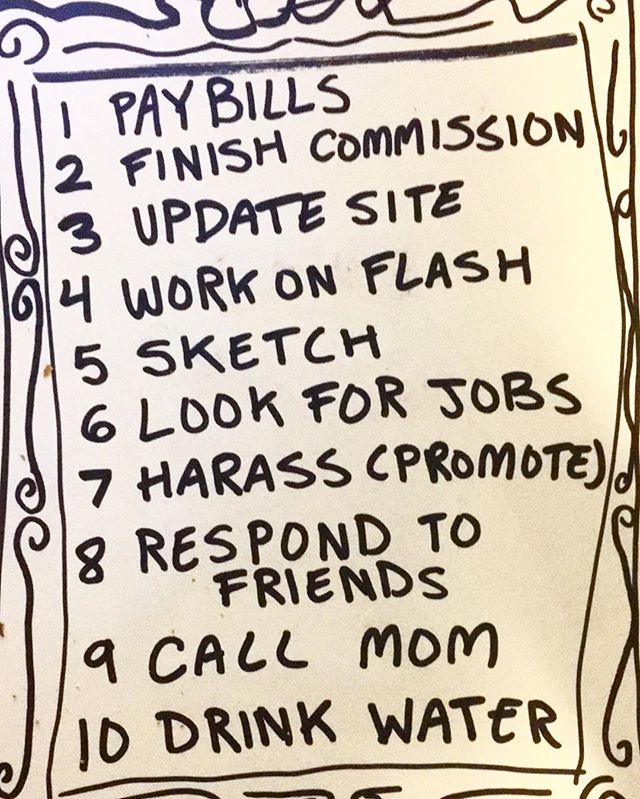 1 PAY BILLS
2 FINISH COMMISSION
3 UPDATE SITE
4 WORK ON FLASH
5 SKETCH
6 LOOK FOR JOBS
7 HARASS (PROMOTE)
8 RESPOND TO
FRIENDS
9 CALL MOM
10 DRINK WATER